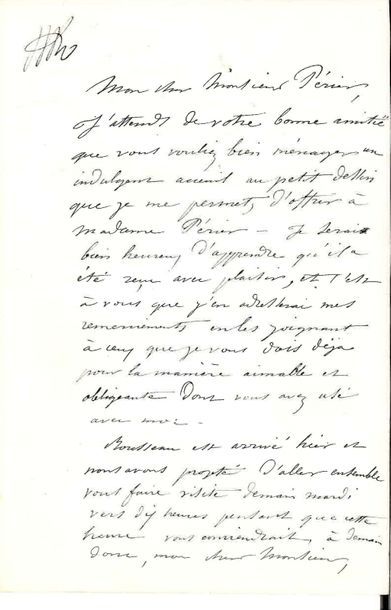 Mon cher Monsieur Périer,
J'attends de votre bonne amitié
que vous vouliez bien ménager un
indulgent accueil au petit dessin
que je me permets d'offrir à
Madame Périer — Je serais
bien heureux d'apprendre qu'il a
été reçu avec plaisir, et c'est
à vous que j'en adresserai mes
remerciements en les joignant
à ceux que je vous dois déjà
pour la manière aimable et
obligeante dont vous avez usé
avec moi -
Rousseau est arrivé hier et
nous avons projeté d'aller ensemble
vous faire visite demain mardi
vers dix heures pensant que cette
heure vous conviendrait, à demain
donc, mon cher Monsieur,